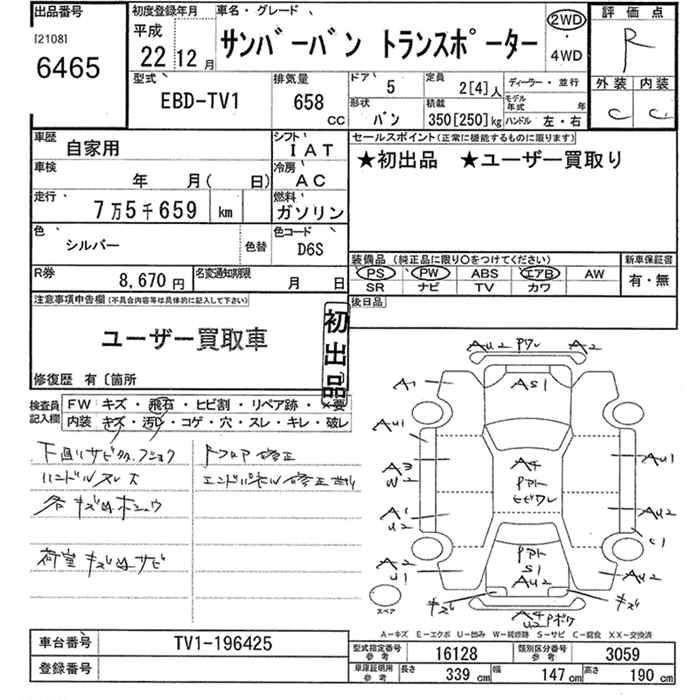 出品番号
[2108]
6465
初度登録年月
平成
22 12月
車名・グレード
サンバーバン トランスポーター
2WD
・
4WD
評価点
R
外装 内装
C C
型式
EBD-TV1
排気量
658
CC
ドア
5
定員
2[4]人
ディーラー・並行
形状
バン
積載
350[250]kg
モデル年式 年
ハンドル 左・右
車歴
自家用
シフト
IAT
車検
年 月( 日)
冷房
AC
走行
7万5千659 km
燃料
ガソリン
色
シルバー
色替
色コード
D6S
R券
8,670円
名変通知期限
月 日
セールスポイント(正常に機能するものに限ります)
★初出品 ★ユーザー買取り
装備品 (純正品に限り○をつけてください)
PS PW ABS エアB AW
SR ナビ TV カワ
新車保証書
有・無
後日品
注意事項申告欄(不具合内容等は具体的に記入して下さい)
ユーザー買取車
初出品
修復歴 有〔箇所
検査員記入欄
FW キズ・飛石・ヒビ割・リペア跡・×要
内装 キズ・汚レ・コゲ・穴・スレ・キレ・破レ
下廻リサビ
ハンドルスレ
各キズ凹
荷室キズ凹サビ
Fフロア修正
エンドパネル修正
AU2 Pワレ A2
A1
AS1
AU1
A3
W2
A4
ヒビワレ
AU1
A1
U2
AU2
C1
AU2
S1
AU2
AU2
U1
キズ
キズ
A4
U2
スペア
A-キズ E-エクボ U-凹み W-補修跡 S-サビ C-腐食 XX-交換済
車台番号
TV1-196425
登録番号
型式指定番号
参考
16128
類別区分番号
参考
3059
車庫証明用
参考
長さ
339 cm
幅
147 cm
高さ
190 cm